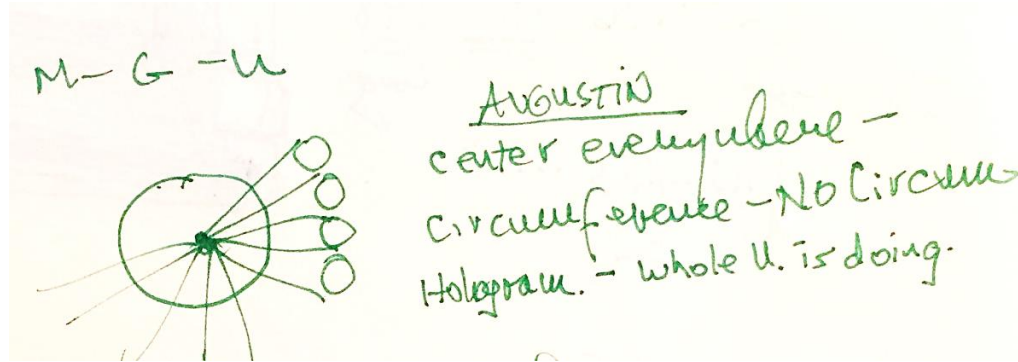 M - G - U
AUGUSTIN
center everywhere -
circumference - No Circum
Hologram. - whole U. is doing.